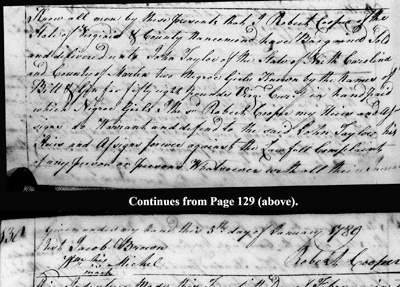 Know all men by these presents that I Robert Cooper of the
State of Virginia & County Nancemond have Bargained Sold
and delivered unto John Taylor of the State of North Carolina
and County of Martin two Negroe Girls known by the Names of
for fifty eight pounds in hand paid
which Negroe Girls I the sd Robert Cooper my Heirs and As
signs do Warrant and defend to the said John Taylor his
Heirs and Assigns forever against the Lawfull Complaints
of any person or persons Whatsoever
Continues from Page 129 (above).
130 Given under my hand this 5th day of January 1789
Test Jacob Brown
his
Michel
mark
Robert Cooper